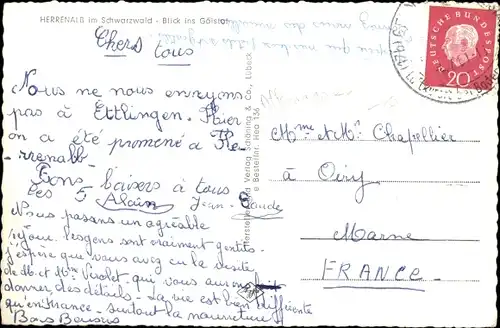 HERRENALB im Schwarzwald - Blick ins Gaistal
Chers tous
Nous ne nous ennuyons
pas à Ettlingen. Hier
on a été promené à He-
rrenalb.
Bons baisers à tous
Les 5 Alain Jean-Claude
Nous passons un agréable
séjour. Les gens sont vraiment gentils.
j'espère que vous avez eu la visite
de M. et Mme Violet qui vous auront
donner des détails - La vie est bien différente
qu'en France - surtout la nourriture
Bons Baisers
Hersteller und Verlag Schöning & Co., Lübeck
Bestellnr. Hea 136
DEUTSCHE BUNDESPOST
20
Mme et Mr Chapellier
à Oiry
Marne
FRANCE